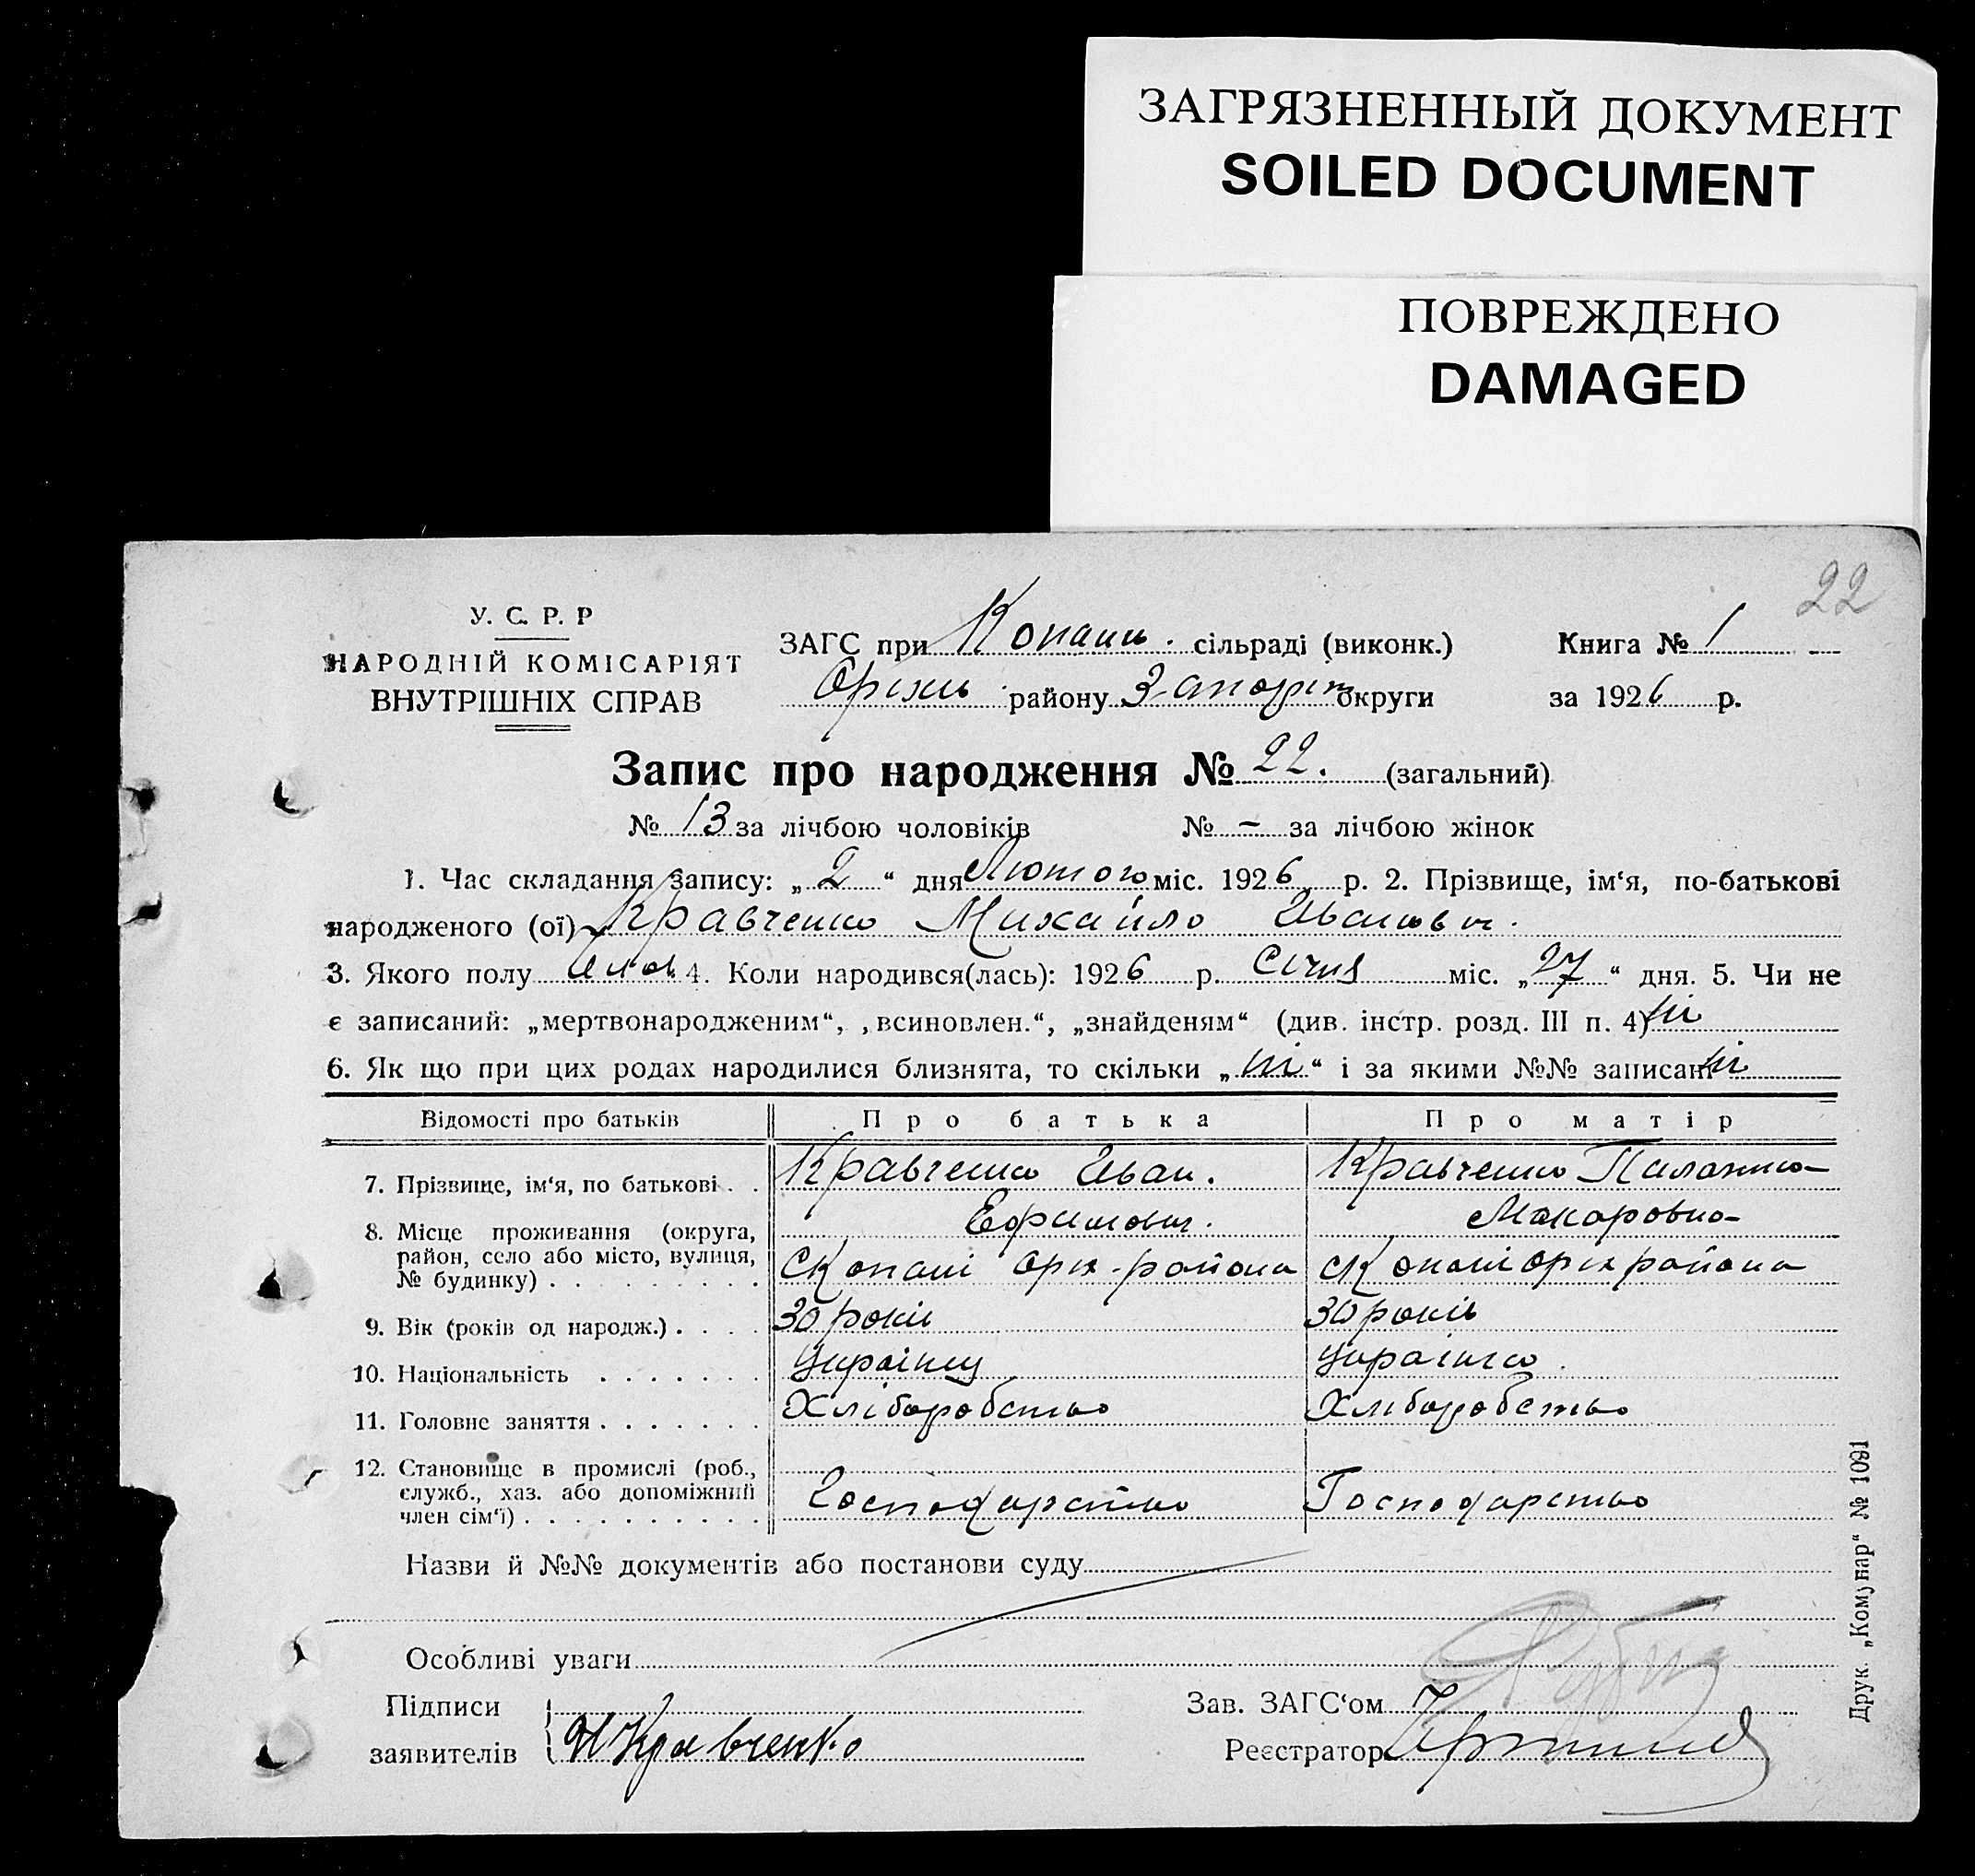 ЗАГРЯЗНЕННЫЙ ДОКУМЕНТ
SOILED DOCUMENT
ПОВРЕЖДЕНО
DAMAGED
22
У. С. Р. Р
НАРОДНІЙ КОМІСАРІЯТ
ВНУТРІШНІХ СПРАВ
ЗАГС при Копани. сільраді (виконк.) Книга № 1
Оріхів. району Запоріж округи за 1926 р.
Запис про народження № 22. (загальний)
№ 13 за лічбою чоловіків № – за лічбою жінок
1. Час складання запису: „2“ дня Лютого міс. 1926 р. 2. Прізвище, ім‘я, по-батькові
народженого (ої) Кравченко Михайло Иванович.
3. Якого полу чолов. 4. Коли народився(лась): 1926 р. Січня міс. „27“ дня. 5. Чи не
є записаний: „мертвонародженим“, „всиновлен.“, „знайденям“ (див. інстр. розд. III п. 4) ні
6. Як що при цих родах народилися близнята, то скільки „ні“ і за якими №№ записані ні
Відомості про батьків Про батька Про матір
7. Прізвище, ім‘я, по батькові . . Кравченко Иван. Кравченко Палажка
Ефимович. Макаровна
8. Місце проживання (округа,
район, село або місто, вулиця,
№ будинку) . . . . . . . . . С Копані Оріх. района С Копані Оріх района
9. Вік (років од народж.) . . . . 30 років 30 років
10. Національність . . . . . . . Українец Українка.
11. Головне заняття . . . . . . . Хліборобство Хліборобство
12. Становище в промислі (роб.,
служб., хаз. або допоміжний
член сім‘ї) . . . . . . . . . . Господарство Господарство
Назви й №№ документів або постанови суду
Особливі уваги
Підписи
заявителів И Кравченко
Зав. ЗАГС‘ом
Реєстратор
Друк. „Комунар“ № 1091